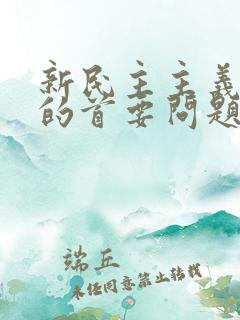 新民主主义
的首要问题
端丘
未经同意禁止转载